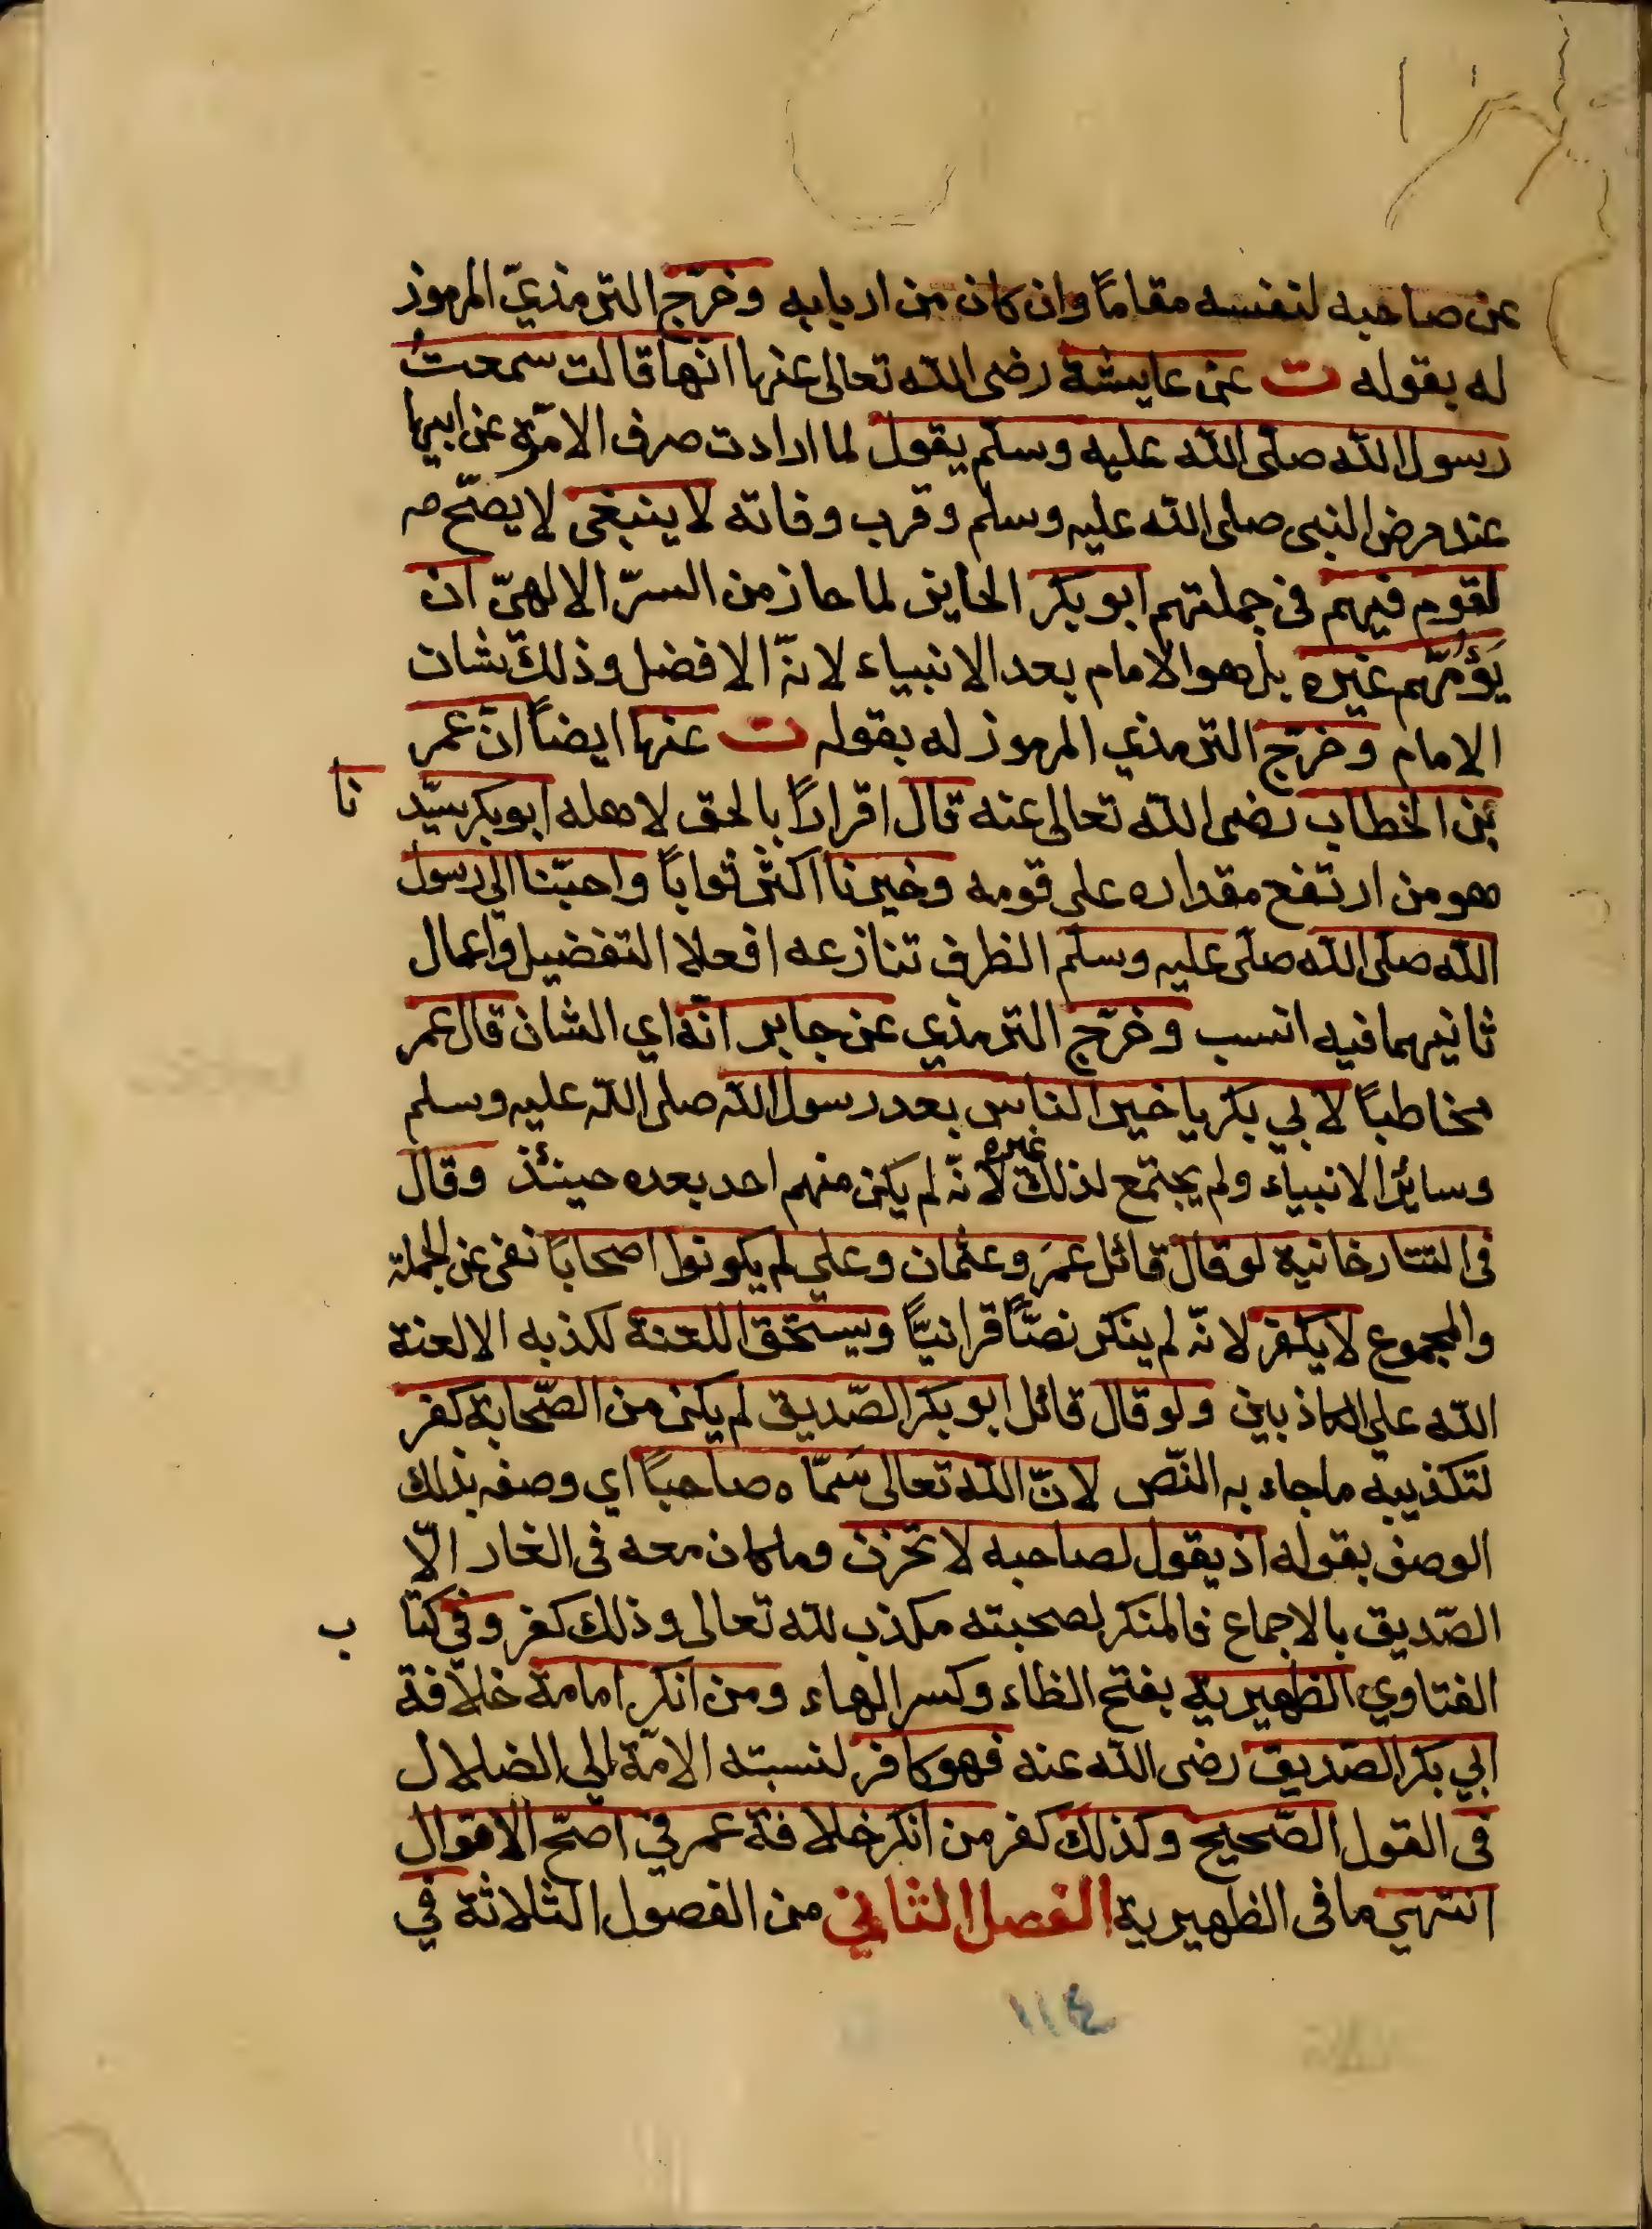 عن صاحبه لنفسه مقاماً وان كان من اربابه وخرّج الترمذيّ المرموز
له بقوله ت عن عايشة رضى الله تعالى عنها انّها قالت سمعتُ
رسول الله صلّى الله عليه وسلّم يقول لما ارادت صرف الامّة عن ابيها
عند مرض النبى صلى الله عليه وسلم وقرب وفاته لا ينبغى لا يصحّ
لقوم فيهم فى جملتهم ابو بكر الحايز لما حاز من السرّ الالهيّ ان
يَؤُمّهم غيره بل هو الامام بعد الانبياء لانّه الافضل وذلك شان
الامام وخرّج الترمذي المرموز له بقوله ت عنها ايضاً انّ عمر
بن الخطاب رضى الله تعالى عنه قال اقراراً بالحق لاهله ابو بكر سيّد نا
هو من ارتفع مقداره على قومه وخيرنا اكثر ثواباً واحبّنا الى رسول
الله صلى الله صلّى عليه وسلّم الظرف تنازعه افعلا التفضيل واعمال
ثانيهما فيه انسب وخرّج الترمذي عن جابر انّه اي الشان قال عمر
مخاطباً لابي بكر يا خير الناس بعد رسول الله صلى الله عليه وسلم
وسائر الانبياء ولم يجتمع لذلك غيره لانّه لم يكن منهم احد بعده حينئذ وقال
فى التتارخانية لو قال قائل عمَر وعثمان وعلي لم يكونوا اصحاباً نفى عن الجملة
والمجموع لا يكفر لانّه لم ينكر نصّاً قرانيّاً ويستحقّ اللعنة لكذبه الا لعنة
الله على الكاذبين ولو قال قائل ابو بكر الصّديق لم يكن من الصّحابة كفر
لتكذيبه ما جاء به النّص لانّ الله تعالى سَمّاه صاحباً اي وصفه بذلك
الوصف بقوله اذ يقول لصاحبه لا تحزن وما كان معه فى الغار الّا
الصّديق بالاجماع فالمنكر لصحبته مكذب لله تعالى وذلك كفر وفي كتا ب
الفتاوي الظهيرية بفتح الظاء وكسر الهاء ومن انكر امامة خلافة
ابي بكر الصّديق رضى الله عنه فهو كافر لنسبته الامّة الى الضلال
فى القول الصّحيح وكذلك كفر من انكر خلافة عمر في اصحّ الاقوال
انتهي ما فى الظهيرية الفصل الثاني من الفصول الثلاثة في
١١٤